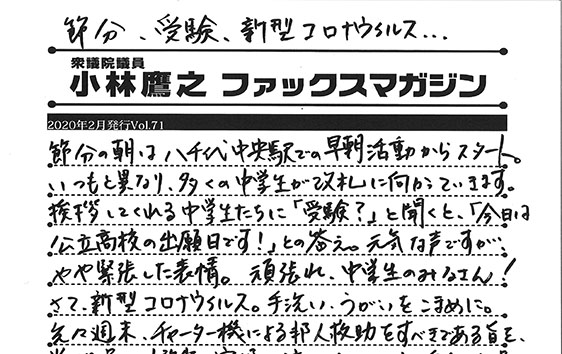 節分、受験、新型コロナウィルス...
衆議院議員
小林鷹之 ファックスマガジン
2020年2月発行Vol.71
節分の朝は八千代中央駅での早朝活動からスタート。
いつもと異なり、多くの中学生が改札に向かっていきます。
挨拶してくれる中学生たちに「受験?」と聞くと、「今日は
公立高校の出願日です!」との答え。元気な声ですが、
やや緊張した表情。頑張れ、中学生のみなさん!
さて、新型コロナウィルス。手洗い、うがいをこまめに。
先々週末、チャーター機による邦人救助をすべきである旨を、